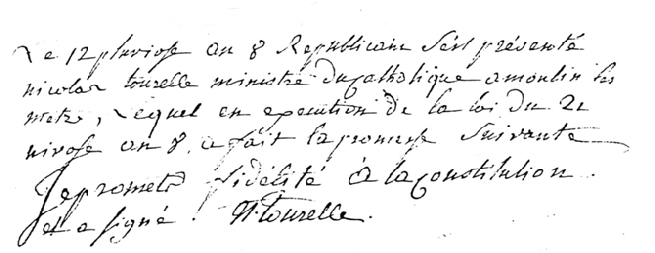 Le 12 pluviose an 8 Republicain s'est présenté
nicolas tourelle ministre du catholique a moulin les
metz, lequel en execution de la loi du 21
nivose an 8, a fait la promesse suivante
Je promets fidélité à la constitution.
et a signé. N. tourelle.